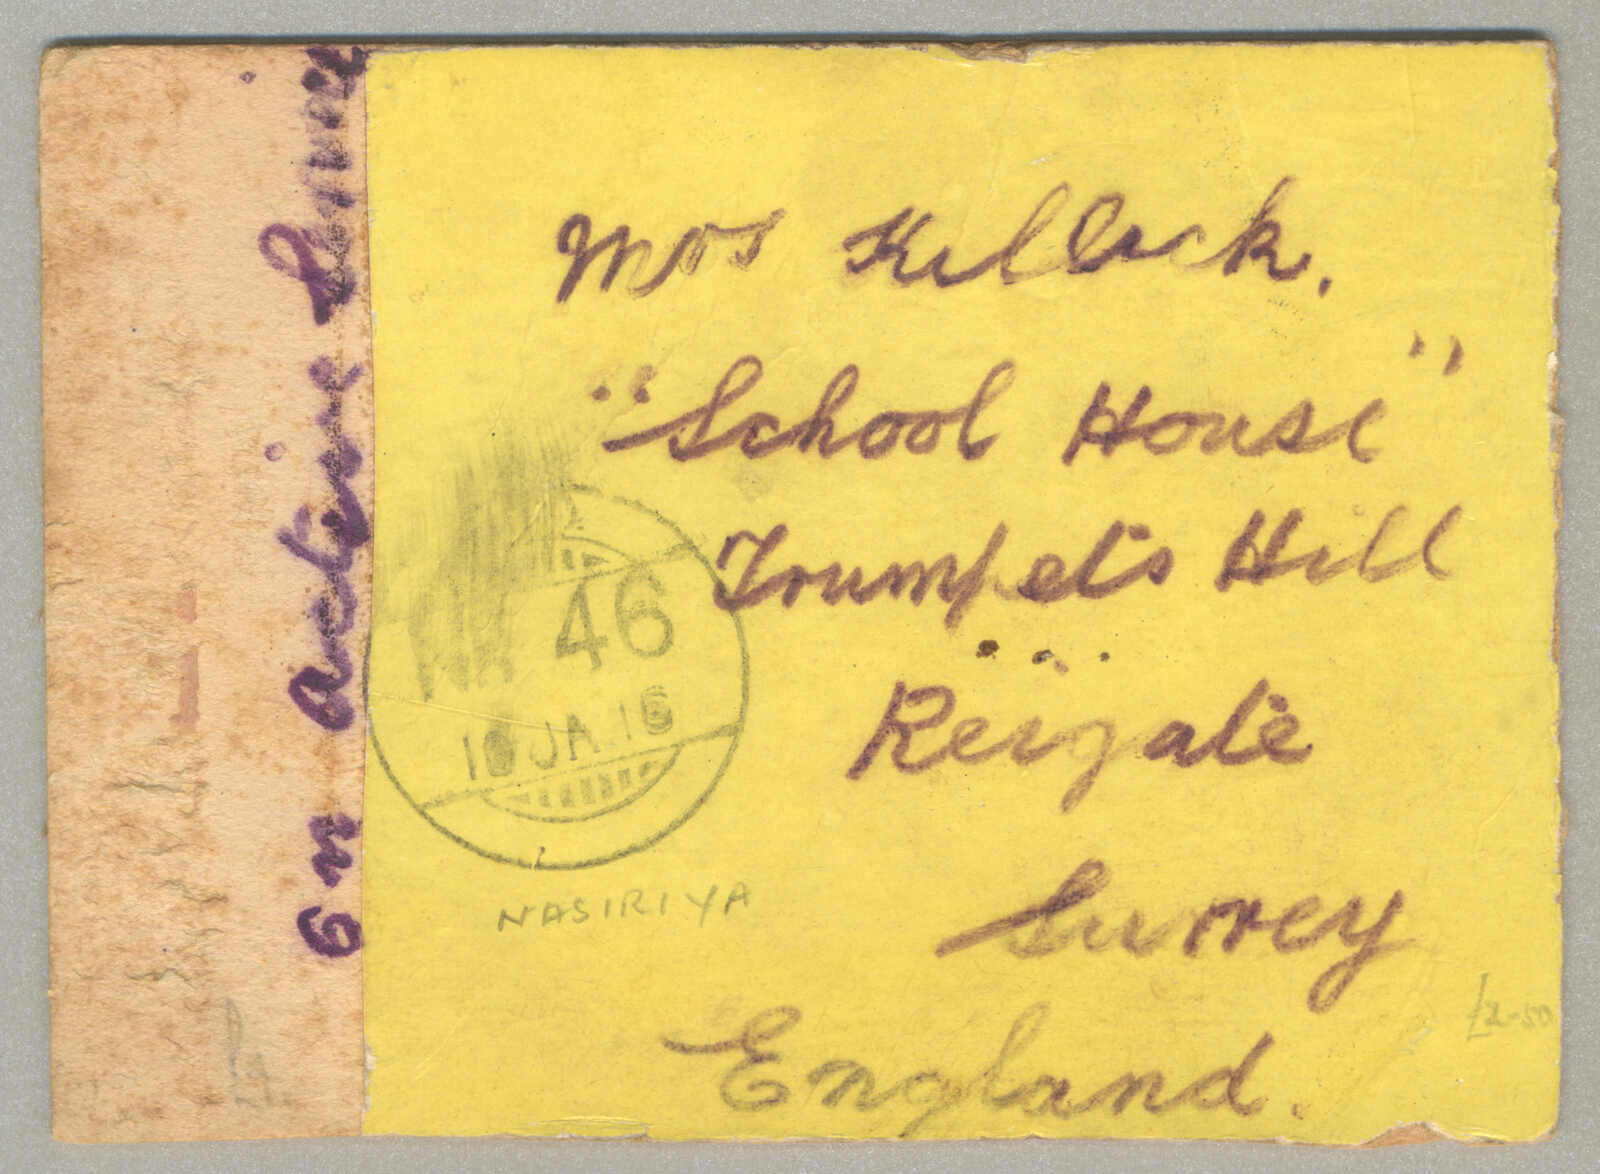 On Active Service
Mrs Killick.
"School House"
Trumpets Hill
Reigate
Surrey
England.
46
JA.16
NASIRIYA
£2-50